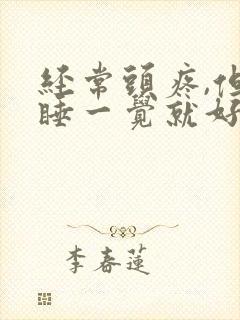 经常頭疼,但
睡一覺就好
李春蓮